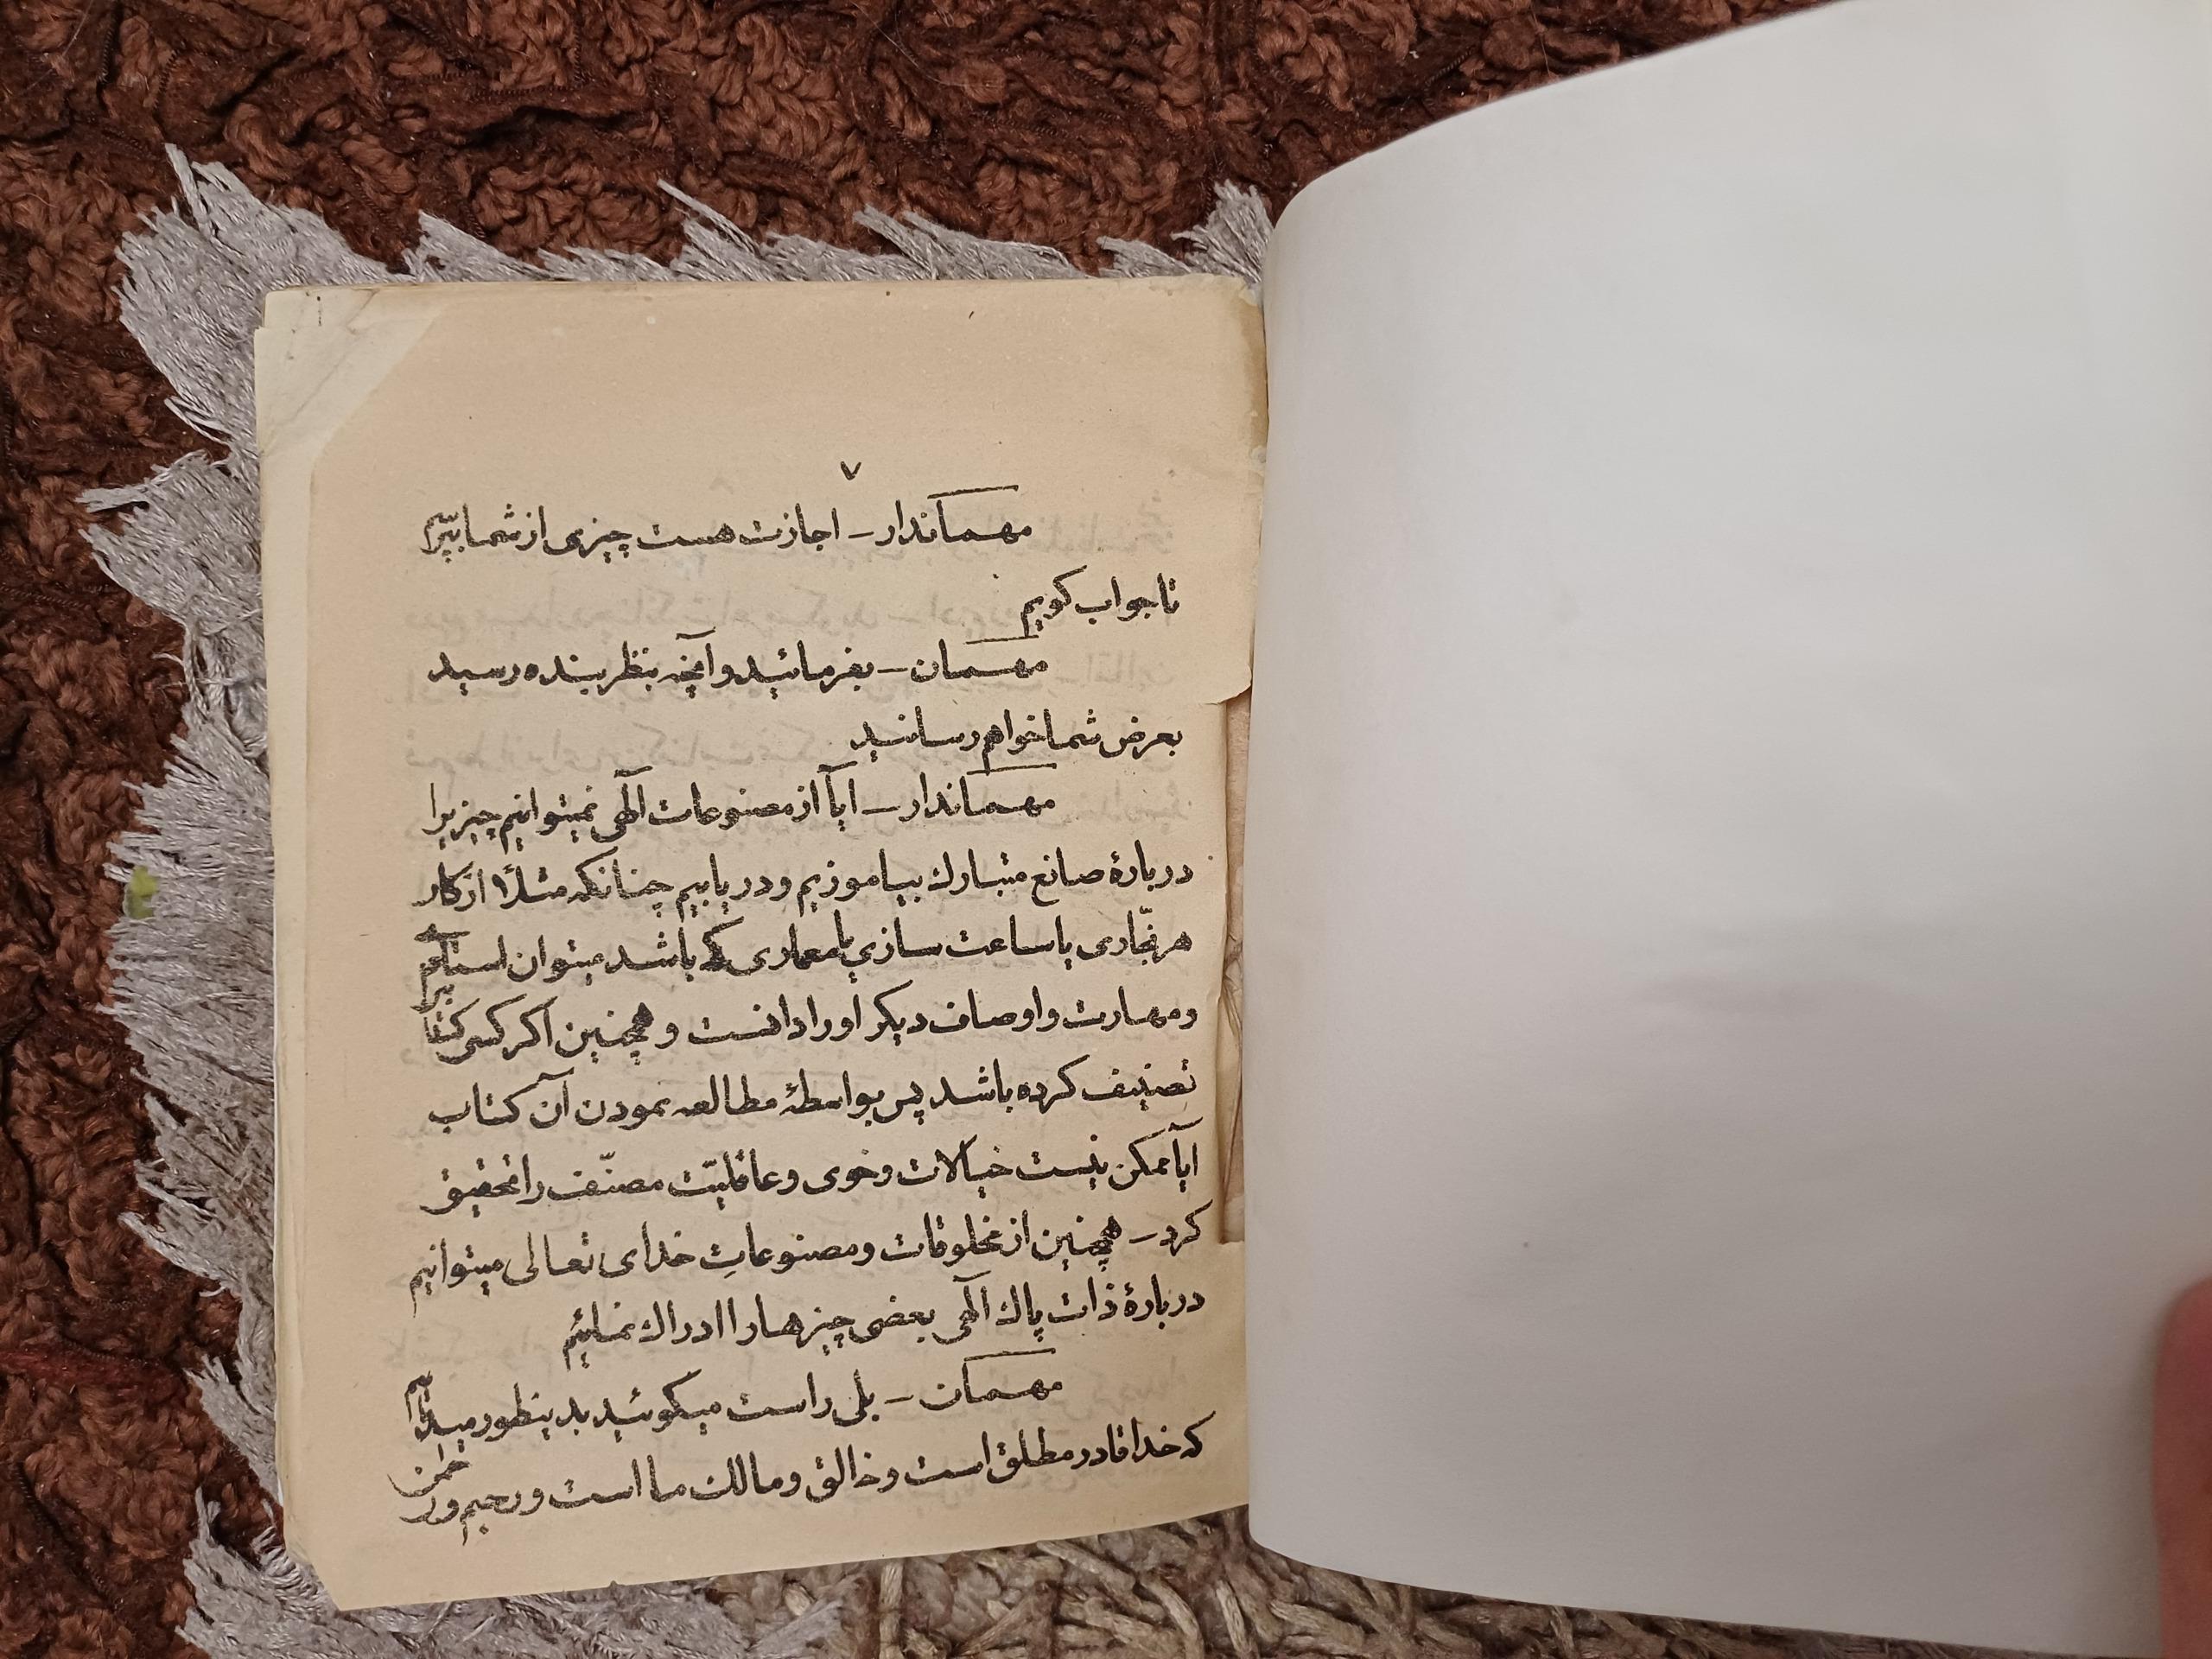 ٧
مهماندار – اجازت هست چیزی از شما بپرسم
تا جواب کویم
مهمان – بفرمائید و آنچه بنظر بنده رسید
بعرض شما خواهم رسانید
مهماندار – ایآ از مصنوعات آلهی نمیتوانیم چیزیرا
دربارهٔ صانع متبارك بیاموزیم و دریابیم چنانکه مثلاً از کار
هر نجّاری یا ساعت سازی یا معماری که باشد میتوان
و مهارت و اوصاف دیکر او را دانست و همچنین اکر کسی کتابیرا
تصنیف کرده باشد پس بواسطهٔ مطالعه نمودن آن کتاب
ایآ ممکن نیست خیالات و خوی و عاقلیّت مصنّف را تحقیق
کرد – همچنین از مخلوقات و مصنوعاتِ خدای تعالی میتوانیم
دربارهٔ ذات پاك آلهی بعضی چیزها را ادراك نمائیم
مهمان – بلی راست میکوئید بدینطور میدانیم
که خدا قادر مطلق است و خالق و مالك ما است و رحیم و رحمن